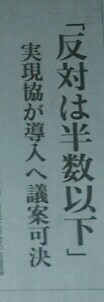 「反対は半数以下」
実現協が導入へ議案可決